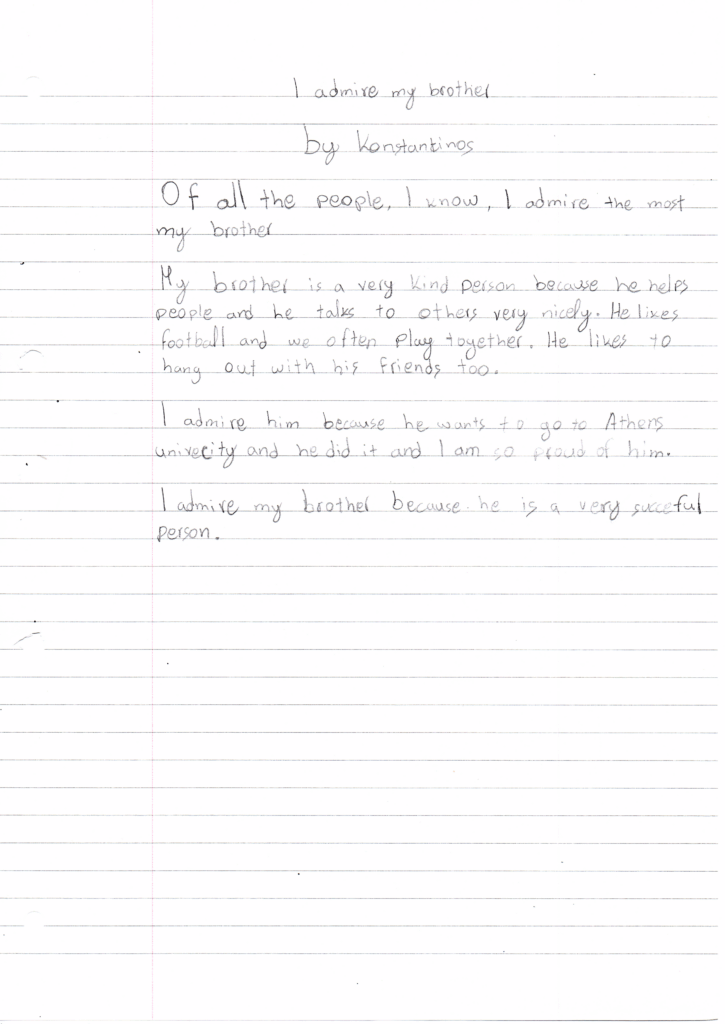 I admire my brother
by Konstantinos
Of all the people, I know, I admire the most
my brother
My brother is a very kind person because he helps
people and he talks to others very nicely. He likes
football and we often play together. He likes to
hang out with his friends too.
I admire him because he wants to go to Athens
univecity and he did it and I am so proud of him.
I admire my brother because he is a very succeful
person.